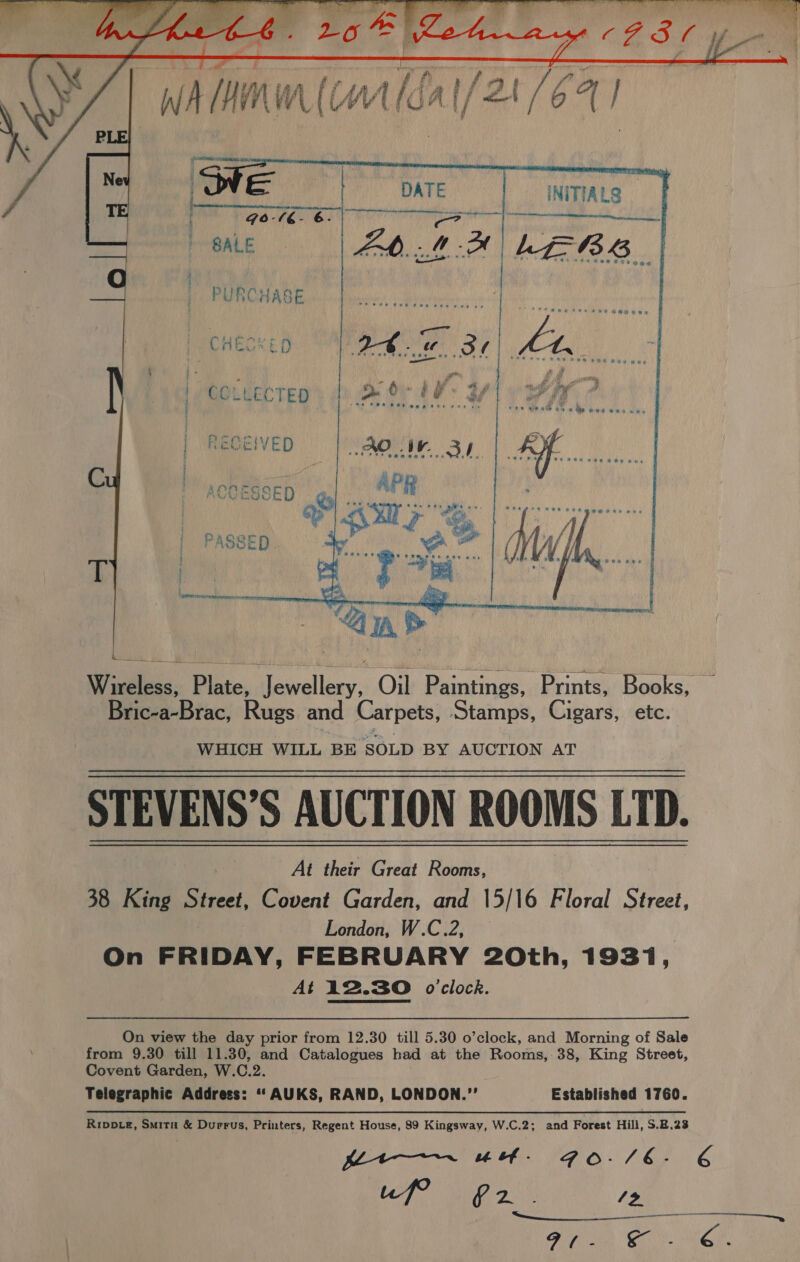 20th February 1931
PLE
Nev
TE
O
N
Cu
T
DATE INITIALS
90-16-6.
SALE 20. II. 31
PURCHASE
CHECKED
COLLECTED
RECEIVED
ACCESSED
PASSED
APR
Wireless, Plate, Jewellery, Oil Paintings, Prints, Books,
Bric-a-Brac, Rugs and Carpets, Stamps, Cigars, etc.
WHICH WILL BE SOLD BY AUCTION AT
STEVENS'S AUCTION ROOMS LTD.
At their Great Rooms,
38 King Street, Covent Garden, and 15/16 Floral Street,
London, W.C.2,
On FRIDAY, FEBRUARY 20th, 1931,
At 12.30 o'clock.
On view the day prior from 12.30 till 5.30 o'clock, and Morning of Sale
from 9.30 till 11.30, and Catalogues had at the Rooms, 38, King Street,
Covent Garden, W.C.2.
Telegraphic Address: "AUKS, RAND, LONDON." Established 1760.
RIDDLE, SMITH & DUFFUS, Printers, Regent House, 89 Kingsway, W.C.2; and Forest Hill, S.E.23
90-16-6
12
91-8-6.